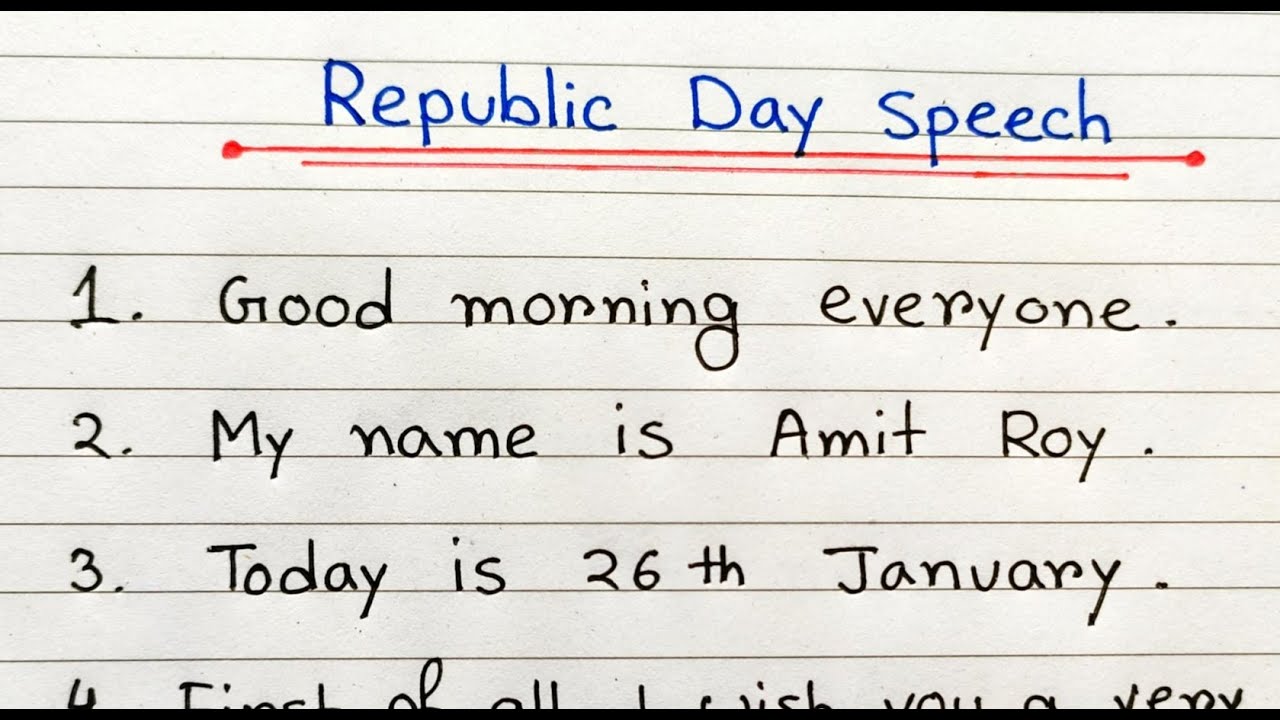 Republic Day Speech
1. Good morning everyone.
2. My name is Amit Roy.
3. Today is 26th January.
4. First of all I wish you a very